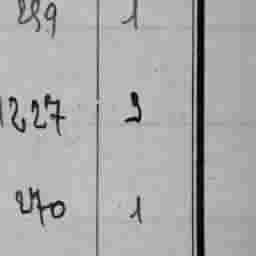 259 1
1227 9
270 1